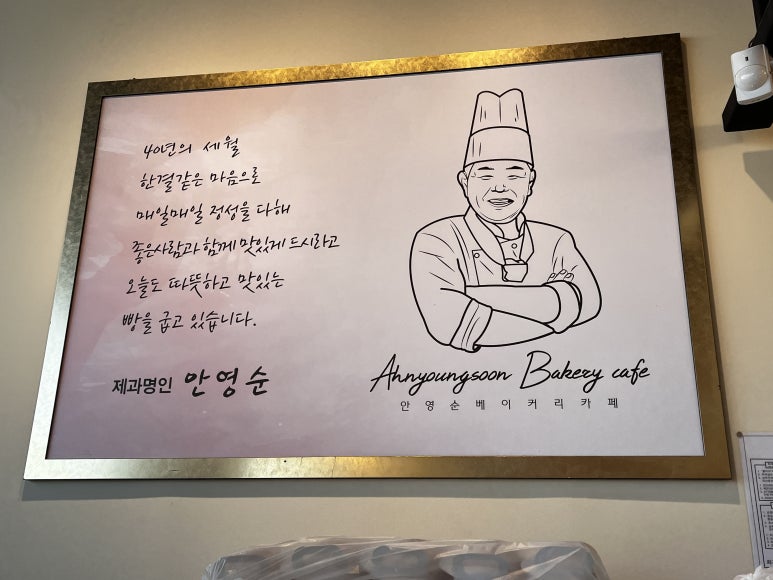 40년의 세월
한결같은 마음으로
매일매일 정성을 다해
좋은사람과 함께 맛있게 드시라고
오늘도 따뜻하고 맛있는
빵을 굽고 있습니다.
제과명인 안영순
Ahnyoungsoon Bakery cafe
안영순베이커리카페